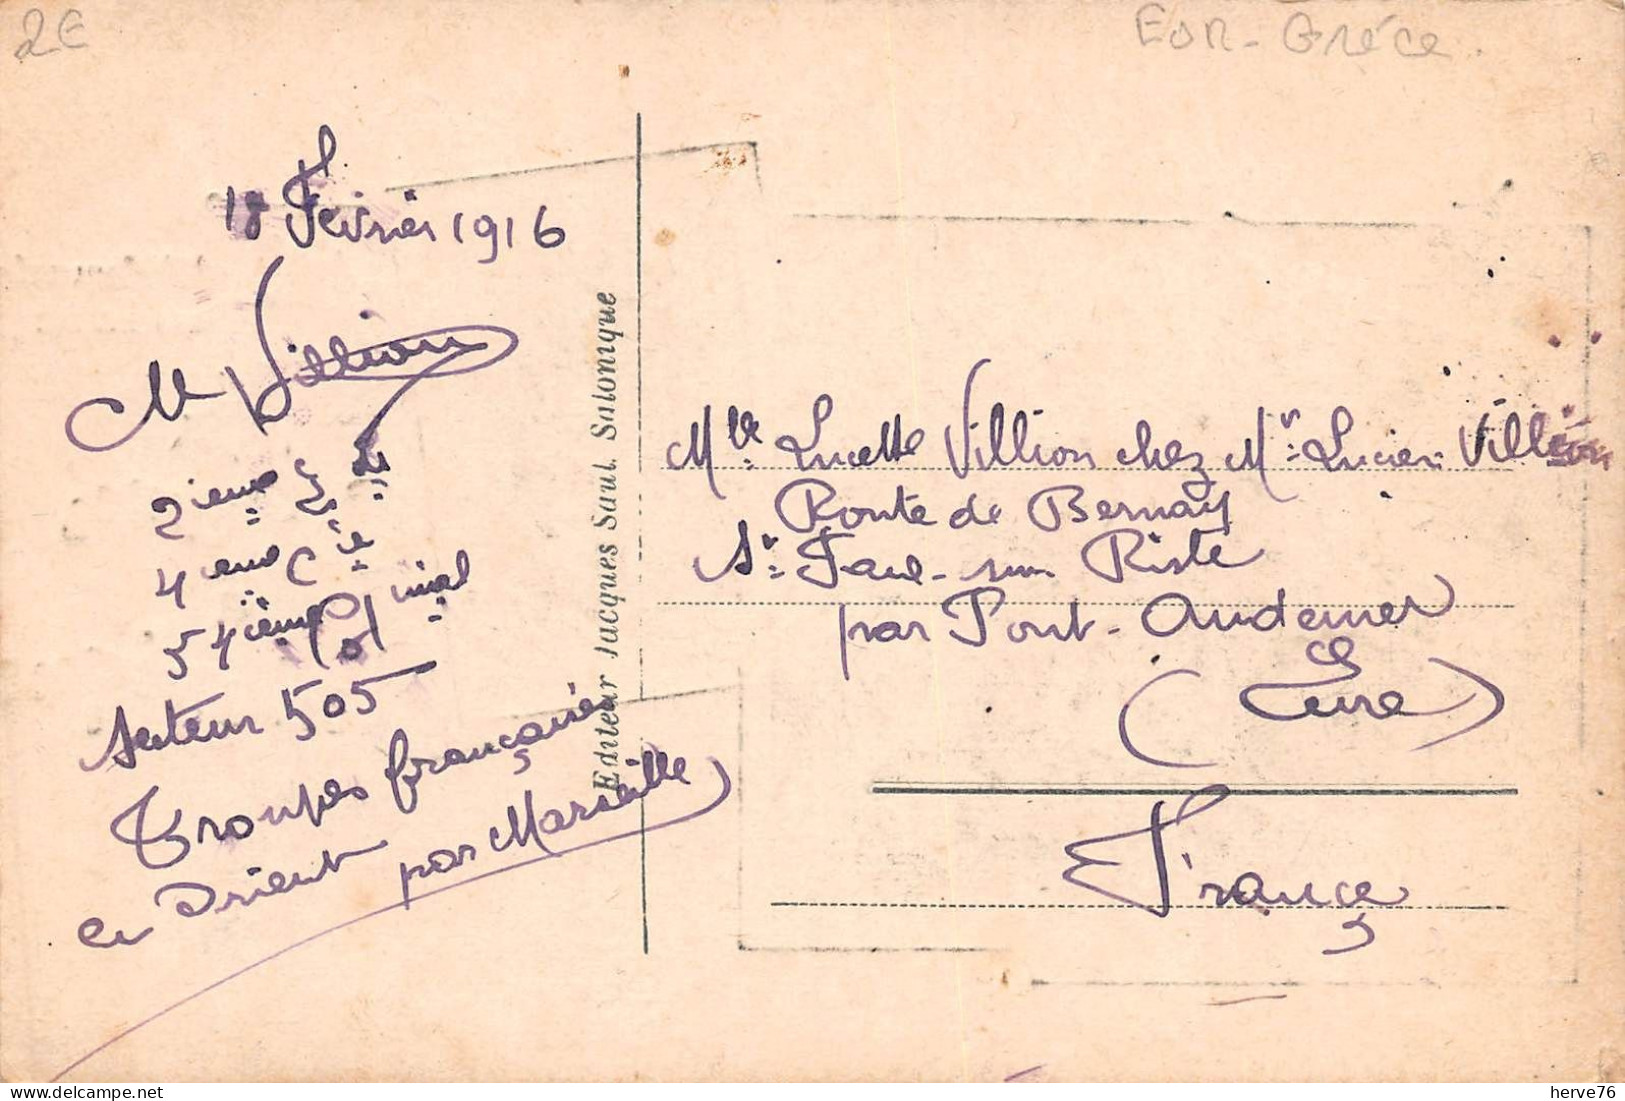 2E
EUR - Grèce
18 Février 1916
M Villion
2ieme
4ieme Cie
54ième
Secteur 505
Troupes françaises
en Orient par Marseille
Editeur Jacques Saul. Salonique
Mlle Lucette Villion chez Mr Lucien Villion
Route de Bernay
St Paul-sur Risle
par Pont-Audemer
(Eure)
France
herve76